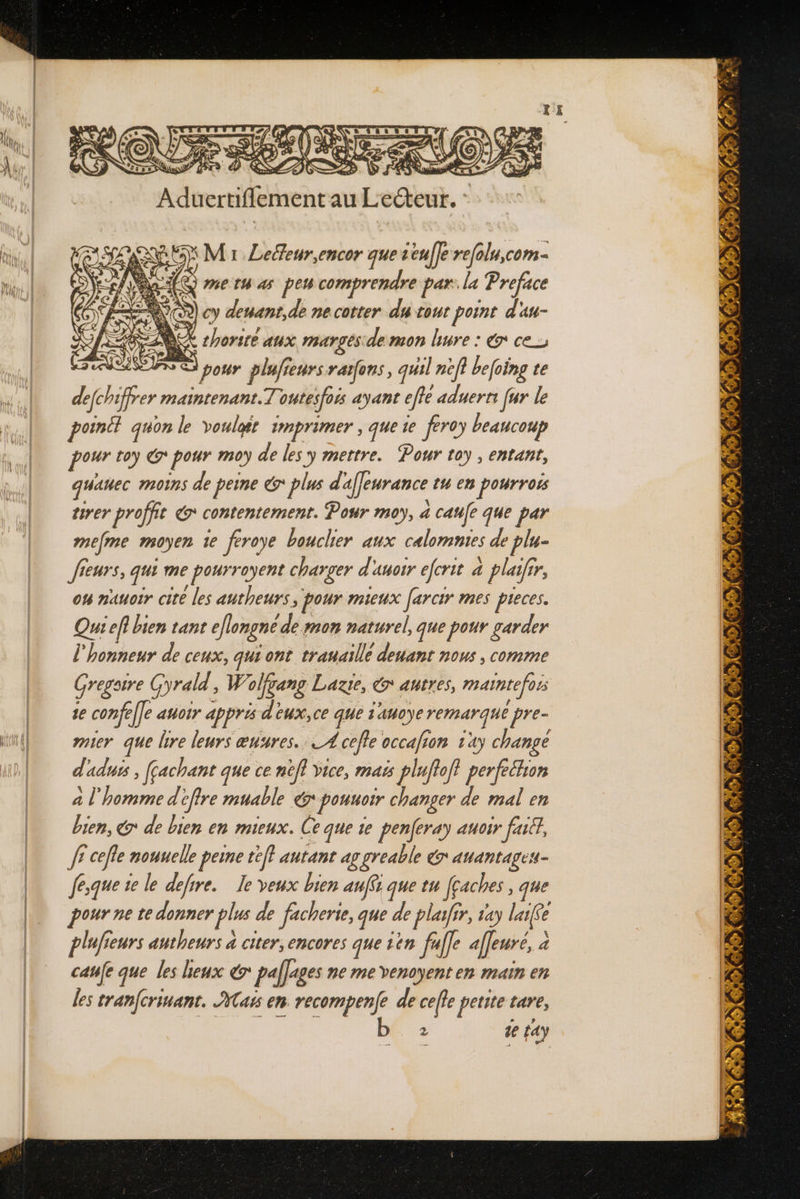 11
Aduertiſſement au Lecteur.
M I Lecteur, encor que i'euſſe reſolu, com-
me tu as peu comprendre par la Preface
cy deuant, de ne cotter du tout point d'au-
thorité aux marges de mon liure : & ce
pour pluſieurs raiſons, qu'il n'eſt beſoing te
deſchiffrer maintenant. Toutesfois ayant eſté aduerti ſur le
poinct qu'on le vouloit imprimer, que ie feroy beaucoup
pour toy & pour moy de les y mettre. Pour toy, entant,
qu'auec moins de peine & plus d'aſſeurance tu en pourrois
tirer proffit & contentement. Pour moy, à cauſe que par
meſme moyen ie feroye bouclier aux calomnies de plu-
ſieurs, qui me pourroyent charger d'auoir eſcrit à plaiſir,
ou n'auoir cité les autheurs, pour mieux farcir mes pieces.
Qui eſt bien tant eſlongné de mon naturel, que pour garder
l'honneur de ceux, qui ont trauaillé deuant nous, comme
Gregoire Gyrald, Wolfgang Lazie, & autres, maintefois
ie confeſſe auoir appris d'eux, ce que i'auoye remarqué pre-
mier que lire leurs œuures. A ceſte occaſion i'ay changé
d'aduis, ſçachant que ce n'eſt vice, mais pluſtoſt perfection
à l'homme d'eſtre muable & pouuoir changer de mal en
bien, & de bien en mieux. Ce que ie penſeray auoir faict,
ſi ceſte nouuelle peine t'eſt autant aggreable & auantageu-
ſe, que ie le deſire. Ie veux bien auſſi que tu ſçaches, que
pour ne te donner plus de facherie, que de plaiſir, i'ay laiſſé
pluſieurs autheurs à citer, encores que i'en fuſſe aſſeuré, à
cauſe que les lieux & paſſages ne me venoyent en main en
les tranſcriuant. Mais en recompenſe de ceſte petite tare,
b 2 ie t'ay